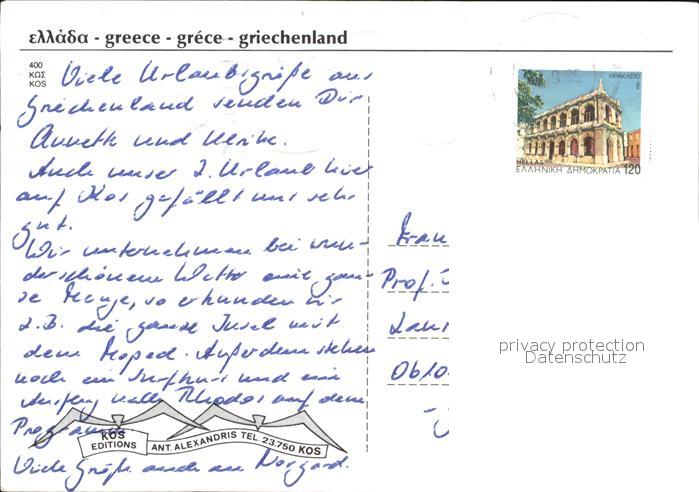 ελλάδα - greece - gréce - griechenland
400
ΚΩΣ
KOS
Viele Urlaubsgrüße aus
Griechenland senden Dir
Annett und Ulrike.
Auch unser 2. Urlaub hier
auf Kos gefällt uns sehr
gut.
Wir unternehmen bei wun-
derschönem Wetter eine gan-
ze Menge, so erkunden wir
z.B. die ganze Insel mit
dem Moped. Außerdem stehen
noch ein Surfkurs und ein
Ausflug nach Rhodos auf dem
Programm.
Viele Grüße auch an
ΗΡΑΚΛΕΙΟ
HELLAS
ΕΛΛΗΝΙΚΗ ΔΗΜΟΚΡΑΤΙΑ 120
Frau
Prof.
privacy protection
Datenschutz
KOS
EDITIONS
ANT. ALEXANDRIS TEL. 23.750 KOS